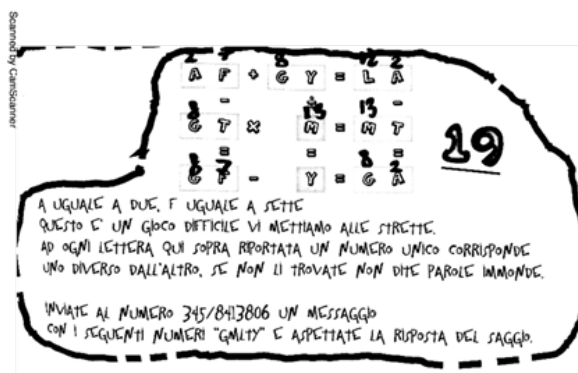 Scanned by CamScanner
2 7 8 12 2
A F + G Y = L A
- ÷ -
8 13 13
G T x M = M T
= = =
8 7 8 2
G F - Y = G A
19
A UGUALE A DUE, F UGUALE A SETTE
QUESTO E' UN GIOCO DIFFICILE VI METTIAMO ALLE STRETTE.
AD OGNI LETTERA QUI SOPRA RIPORTATA UN NUMERO UNICO CORRISPONDE
UNO DIVERSO DALL'ALTRO, SE NON LI TROVATE NON DITE PAROLE IMMONDE.
INVIATE AL NUMERO 345/8413806 UN MESSAGGIO
CON I SEGUENTI NUMERI "GMLTY" E ASPETTATE LA RISPOSTA DEL SAGGIO.